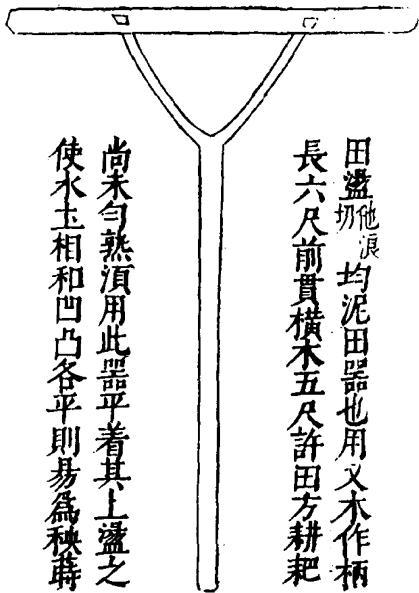 田盪他浪切均泥田器也用叉木作柄
長六尺前貫橫木五尺許田方耕耙
尚未勻熟須用此器平着其上盪之
使水土相和凹凸各平則易爲秧蒔